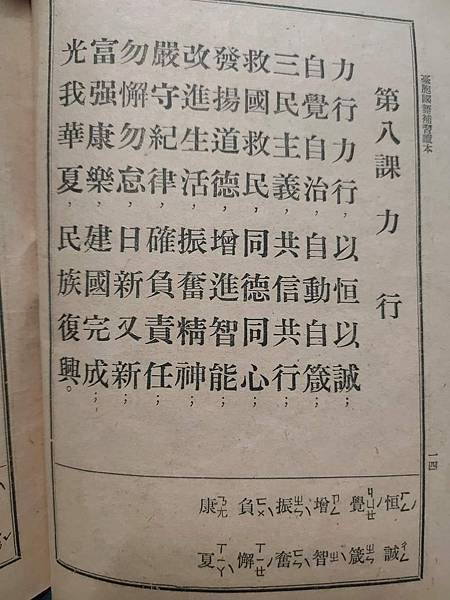 臺胞國語補習讀本
一四
第八課 力行
力行力行,以恒以誠;
自覺自治,自動自箴;
三民主義,共信共行;
救國救民,同德同心;
發揚道德,增進智能;
改進生活,振奮精神;
嚴守紀律,確負責任;
勿懈勿怠,日新又新;
富强康樂,建國完成;
光我華夏,民族復興。
恒ㄏㄥˊ 覺ㄐㄩㄝˊ 增ㄗㄥ 振ㄓㄣˋ 負ㄈㄨˋ 康ㄎㄤ
誠ㄔㄥˊ 箴ㄓㄣ 智ㄓˋ 奮ㄈㄣˋ 懈ㄒㄧㄝˋ 夏ㄒㄧㄚˋ